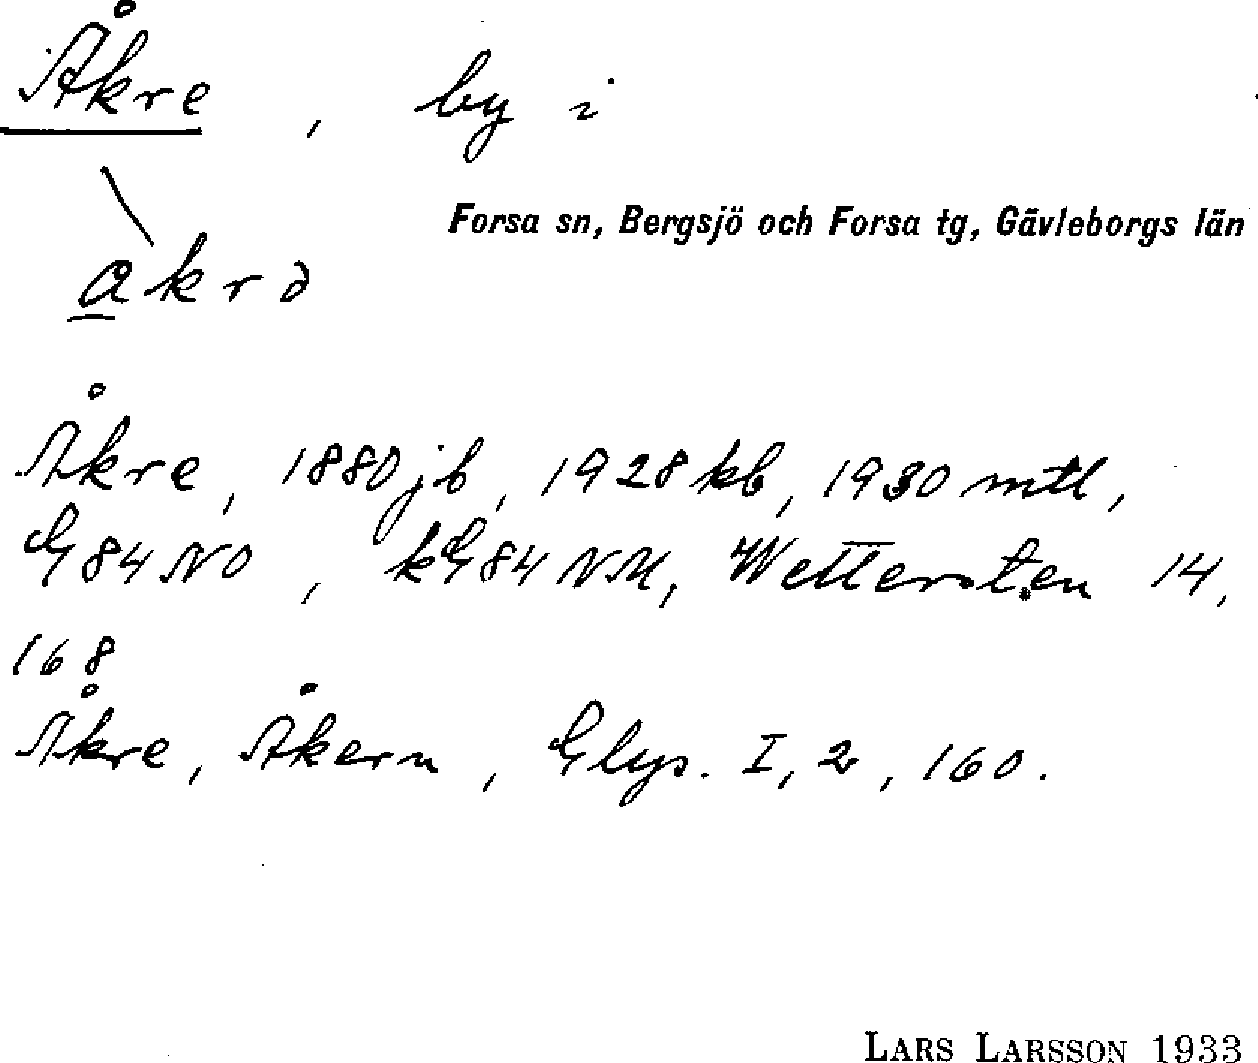 Åkre, by i
Forsa sn, Bergsjö och Forsa tg, Gävleborgs län
åkrə
Åkre, 1880 jb, 1928 kb, 1930 mtl,
G 84 NO, kG 84 NM, Wettersten 14,
168
Åkre, Åkern, Glys. I, 2, 160.
LARS LARSSON 1933